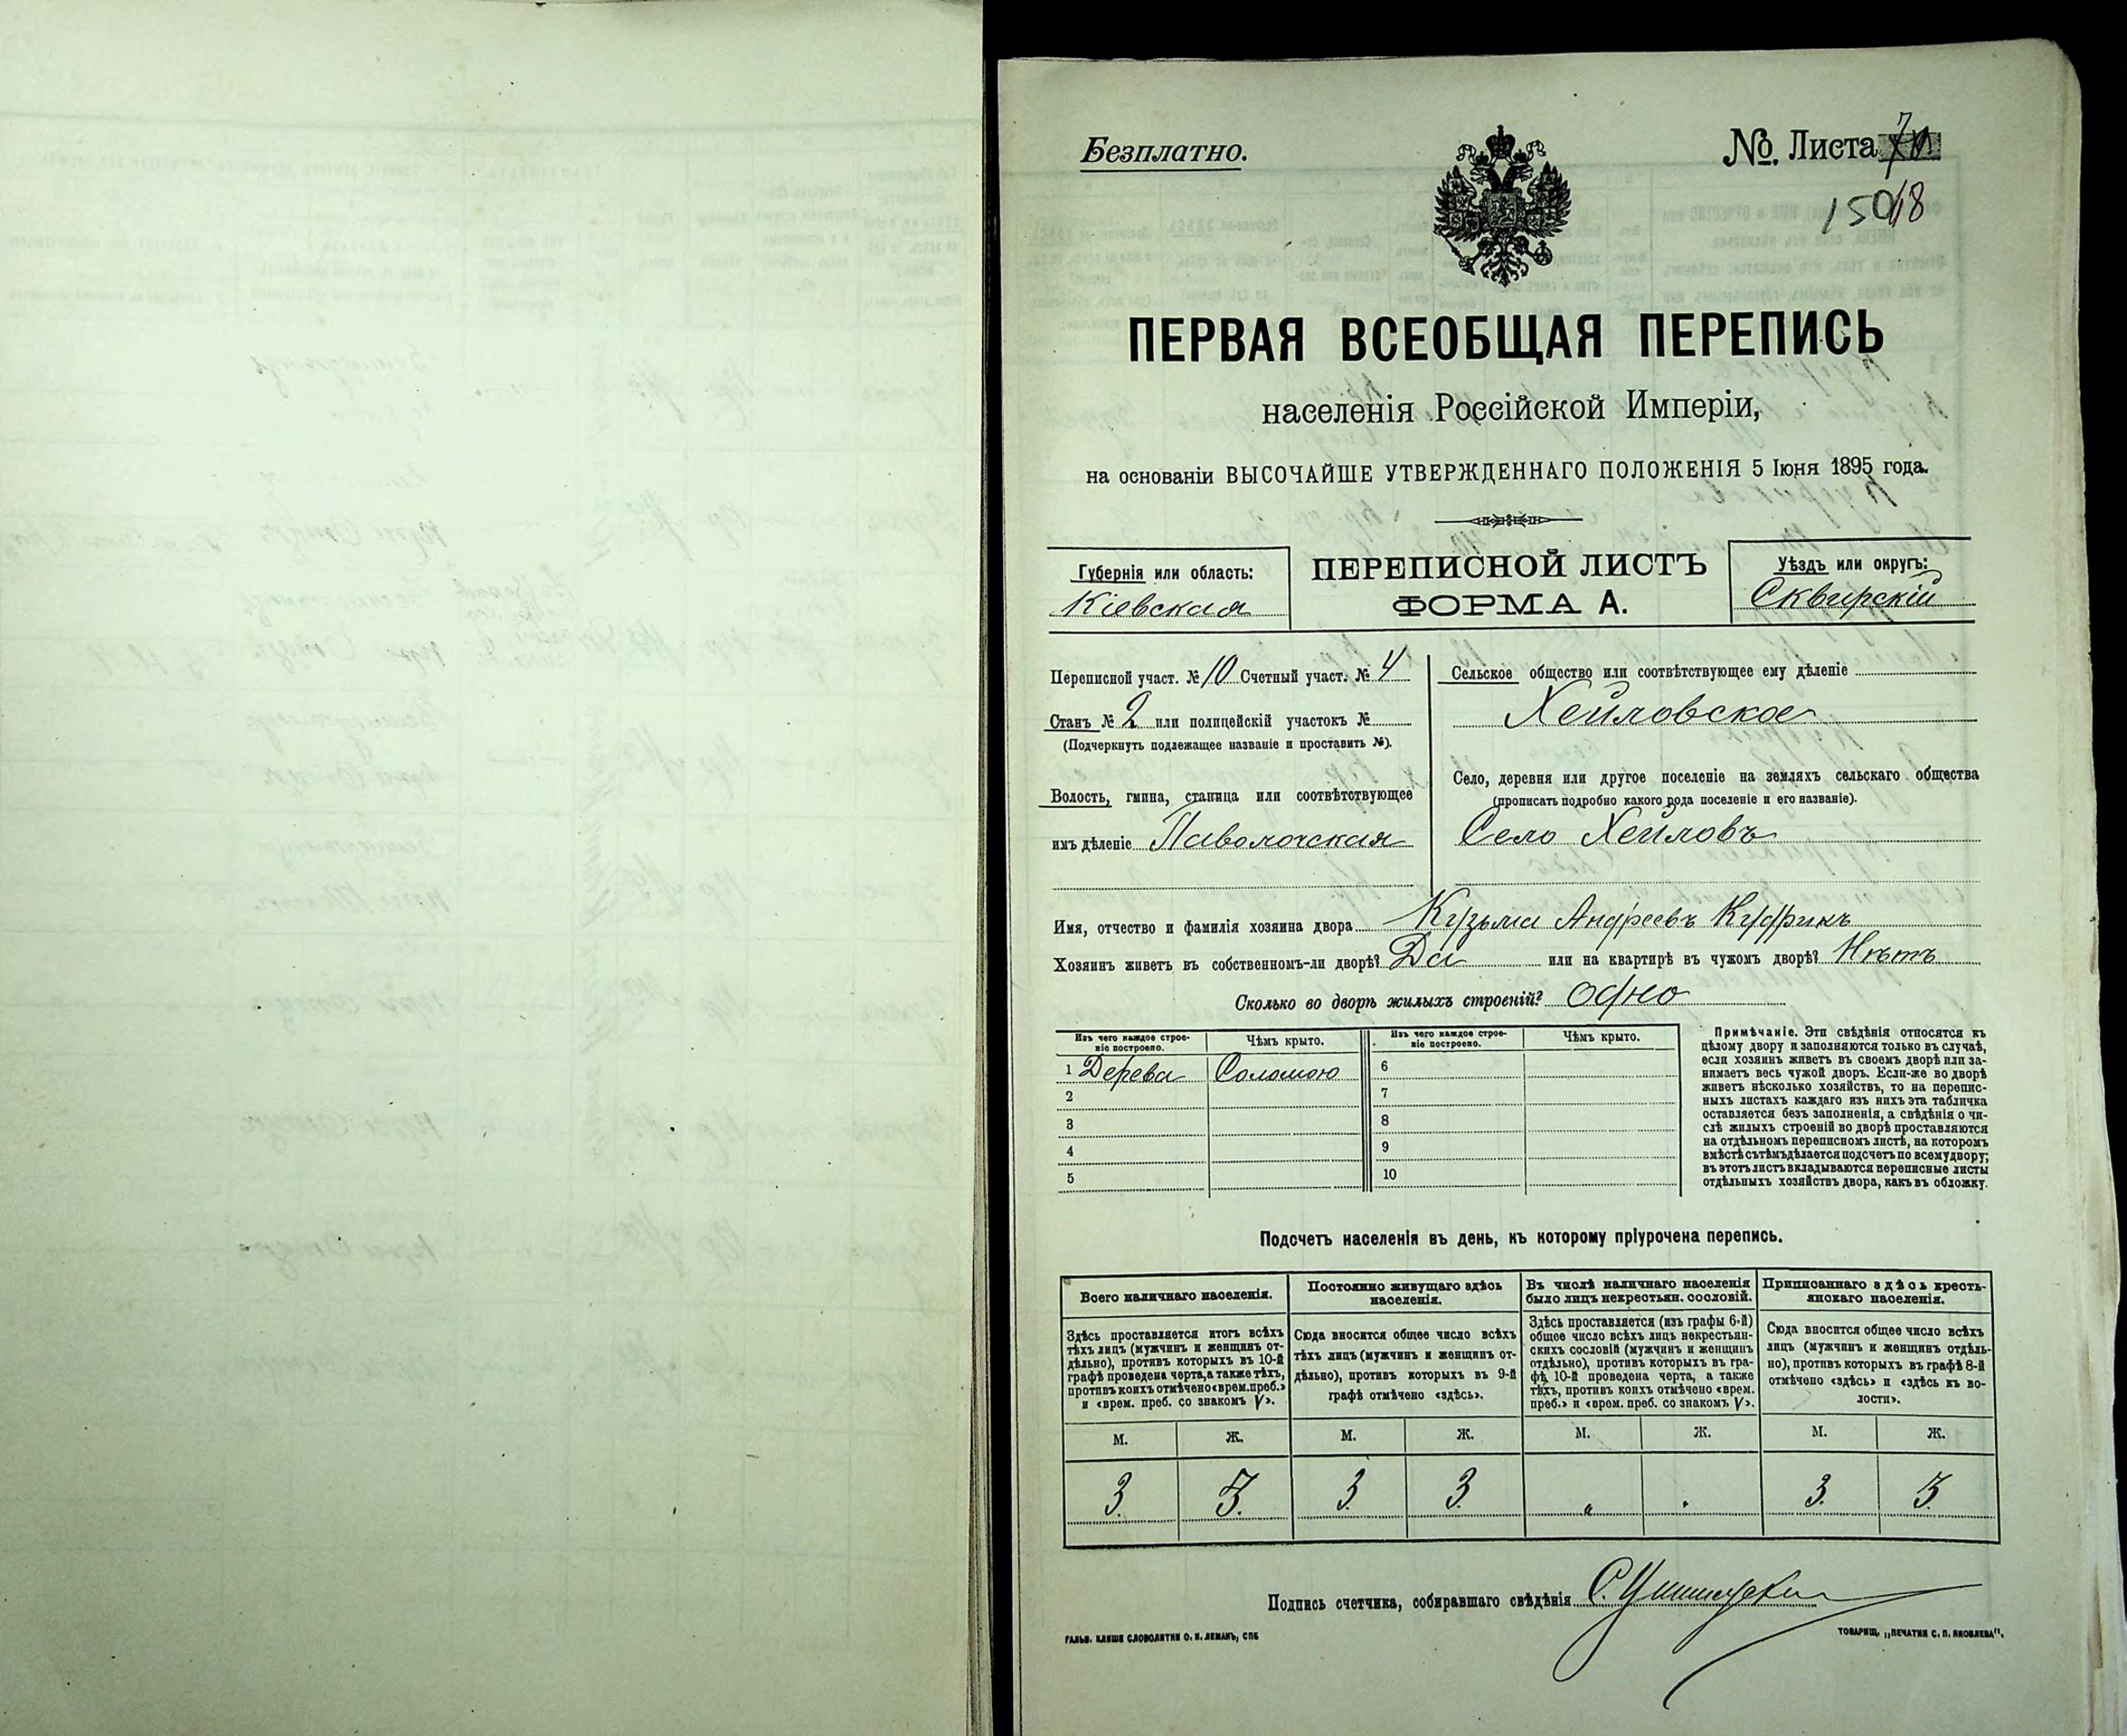 Безплатно.
№. Листа 70
150/18
ПЕРВАЯ ВСЕОБЩАЯ ПЕРЕПИСЬ
населенія Россійской Имперіи,
на основаніи ВЫСОЧАЙШЕ УТВЕРЖДЕННАГО ПОЛОЖЕНІЯ 5 Іюня 1895 года.
Губернія или область:
Кіевская
ПЕРЕПИСНОЙ ЛИСТЪ
ФОРМА А.
Уѣздъ или округъ:
Сквирскій
Переписной участ. № 10 Счетный участ. № 4
Станъ № 2 или полицейскій участокъ №
(Подчеркнуть подлежащее названіе и проставить №).
Волость, гмина, станица или соотвѣтствующее
имъ дѣленіе Паволочская
Сельское общество или соотвѣтствующее ему дѣленіе
Хейловское
Село, деревня или другое поселеніе на земляхъ сельскаго общества
(прописать подробно какого рода поселеніе и его названіе).
Село Хейловъ
Имя, отчество и фамилія хозяина двора Кузьма Андреевъ Кудрикъ
Хозяинъ живетъ въ собственномъ-ли дворѣ? Да или на квартирѣ въ чужомъ дворѣ? Нѣтъ
Сколько во дворѣ жилыхъ строеній? одно
Изъ чего каждое строе-
ніе построено.
Чѣмъ крыто.
Изъ чего каждое строе-
ніе построено.
Чѣмъ крыто.
1 Дерева Соломою 6
2 7
3 8
4 9
5 10
Примѣчаніе. Эти свѣдѣнія относятся къ
цѣлому двору и заполняются только въ случаѣ,
если хозяинъ живетъ въ своемъ дворѣ или за-
нимаетъ весь чужой дворъ. Если-же во дворѣ
живетъ нѣсколько хозяйствъ, то на перепис-
ныхъ листахъ каждаго изъ нихъ эта табличка
оставляется безъ заполненія, а свѣдѣнія о чи-
слѣ жилыхъ строеній во дворѣ проставляются
на отдѣльномъ переписномъ листѣ, на которомъ
вмѣстѣ съ тѣмъ дѣлается подсчетъ по всему двору;
въ этотъ листъ вкладываются переписные листы
отдѣльныхъ хозяйствъ двора, какъ въ обложку.
Подсчетъ населенія въ день, къ которому пріурочена перепись.
Всего наличнаго населенія.
Постоянно живущаго здѣсь
населенія.
Въ числѣ наличнаго населенія
было лицъ некрестьян. сословій.
Приписаннаго здѣсь кресть-
янскаго населенія.
Здѣсь проставляется итогъ всѣхъ
тѣхъ лицъ (мужчинъ и женщинъ от-
дѣльно), противъ которыхъ въ 10-й
графѣ проведена черта, а также тѣхъ,
противъ коихъ отмѣчено «врем. преб.»
и «врем. преб. со знакомъ V».
Сюда вносится общее число всѣхъ
тѣхъ лицъ (мужчинъ и женщинъ от-
дѣльно), противъ которыхъ въ 9-й
графѣ отмѣчено «здѣсь».
Здѣсь проставляется (изъ графы 6-й)
общее число всѣхъ лицъ некрестьян-
скихъ сословій (мужчинъ и женщинъ
отдѣльно), противъ которыхъ въ гра-
фѣ 10-й проведена черта, а также
тѣхъ, противъ коихъ отмѣчено «врем.
преб.» и «врем. преб. со знакомъ V».
Сюда вносится общее число всѣхъ
лицъ (мужчинъ и женщинъ отдѣль-
но), противъ которыхъ въ графѣ 8-й
отмѣчено «здѣсь» и «здѣсь къ во-
лости».
М. Ж. М. Ж. М. Ж. М. Ж.
3. 3. 3. 3. „ . 3. 3.
Подпись счетчика, собиравшаго свѣдѣнія
ГАЛЬВ. КЛИШЕ СЛОВОЛИТНИ О. И. ЛЕМАНЪ, СПБ
ТОВАРИЩ. „ПЕЧАТНЯ С. П. ЯКОВЛЕВА".